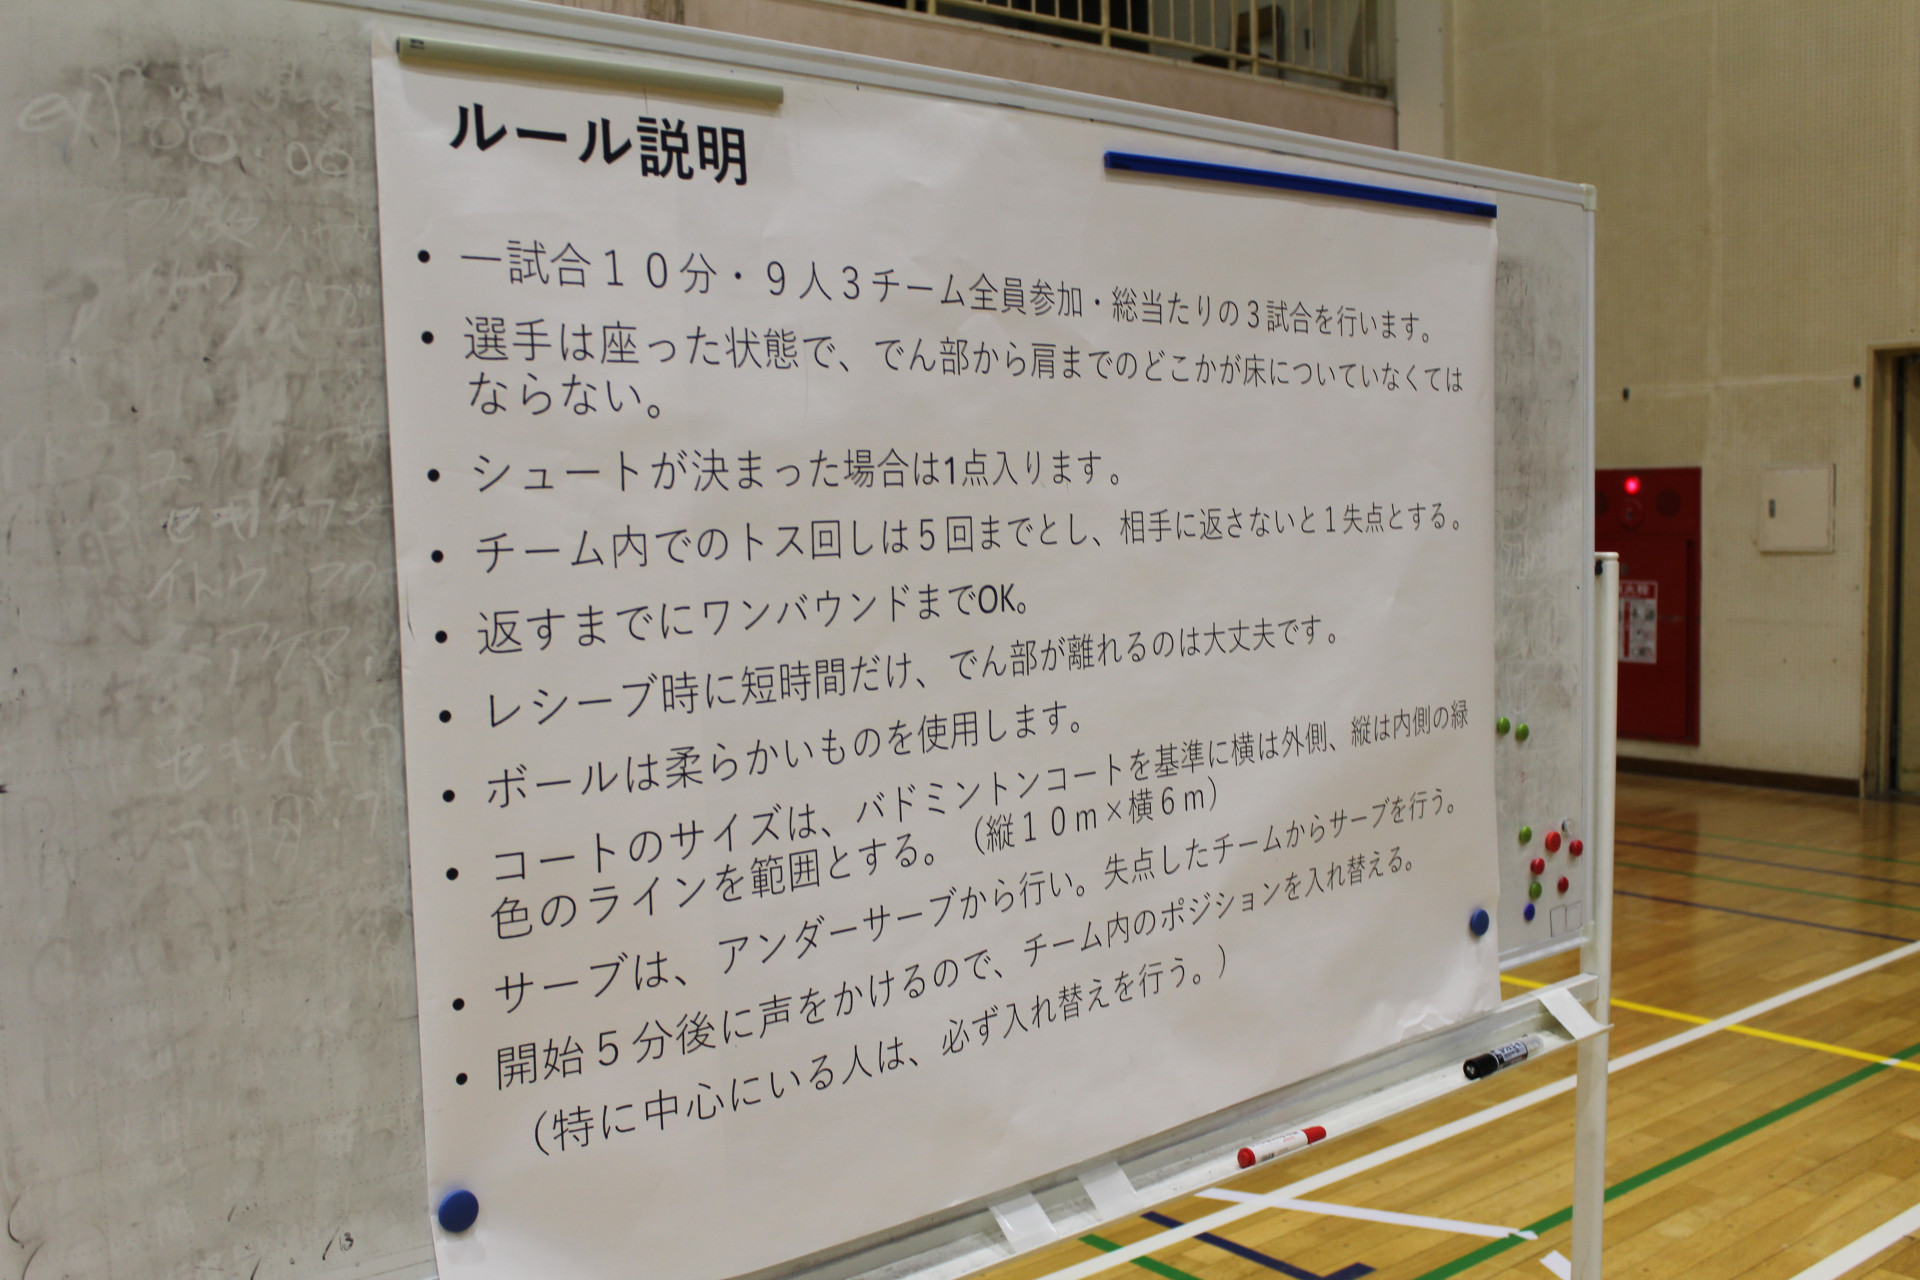 ルール説明
• 一試合１０分・９人３チーム全員参加・総当たりの３試合を行います。
• 選手は座った状態で、でん部から肩までのどこかが床についていなくては
ならない。
• シュートが決まった場合は1点入ります。
• チーム内でのトス回しは５回までとし、相手に返さないと１失点とする。
• 返すまでにワンバウンドまでOK。
• レシーブ時に短時間だけ、でん部が離れるのは大丈夫です。
• ボールは柔らかいものを使用します。
• コートのサイズは、バドミントンコートを基準に横は外側、縦は内側の緑
色のラインを範囲とする。（縦１０ｍ×横６ｍ）
• サーブは、アンダーサーブから行い。失点したチームからサーブを行う。
• 開始５分後に声をかけるので、チーム内のポジションを入れ替える。
（特に中心にいる人は、必ず入れ替えを行う。）